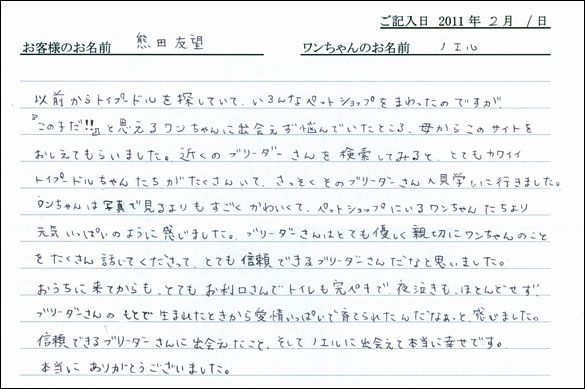 ご記入日 2011年 2月 1日
お客様のお名前 熊田友望 ワンちゃんのお名前 ノエル
以前からトイプードルを探していて、いろんなペットショップをまわったのですが
『この子だ!!』と思えるワンちゃんに出会えず悩んでいたところ、母からこのサイトを
おしえてもらいました。近くのブリーダーさんを検索してみると、とてもカワイイ
トイプードルちゃんたちがたくさんいて、さっそくそのブリーダーさんへ見学しに行きました。
ワンちゃんは写真で見るよりもすごくかわいくて、ペットショップにいるワンちゃんたちより
元気いっぱいのように感じました。ブリーダーさんはとても優しく親切にワンちゃんのこと
をたくさん話してくださって、とても信頼できるブリーダーさんだなと思いました。
おうちに来てからも、とてもお利口さんでトイレも完ペキで夜泣きも、ほとんどせず、
ブリーダーさんのもとで生まれたときから愛情いっぱいで育てられたんだなぁっと感じました。
信頼できるブリーダーさんに出会えたこと、そしてノエルに出会えて本当に幸せです。
本当にありがとうございました。